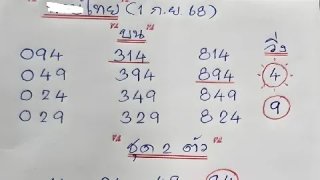 ไทย (1 ก.ย 68)
บน วิ่ง
094 314 814
049 394 894 4
024 349 849 9
029 329 824
ชุด 2 ตัว